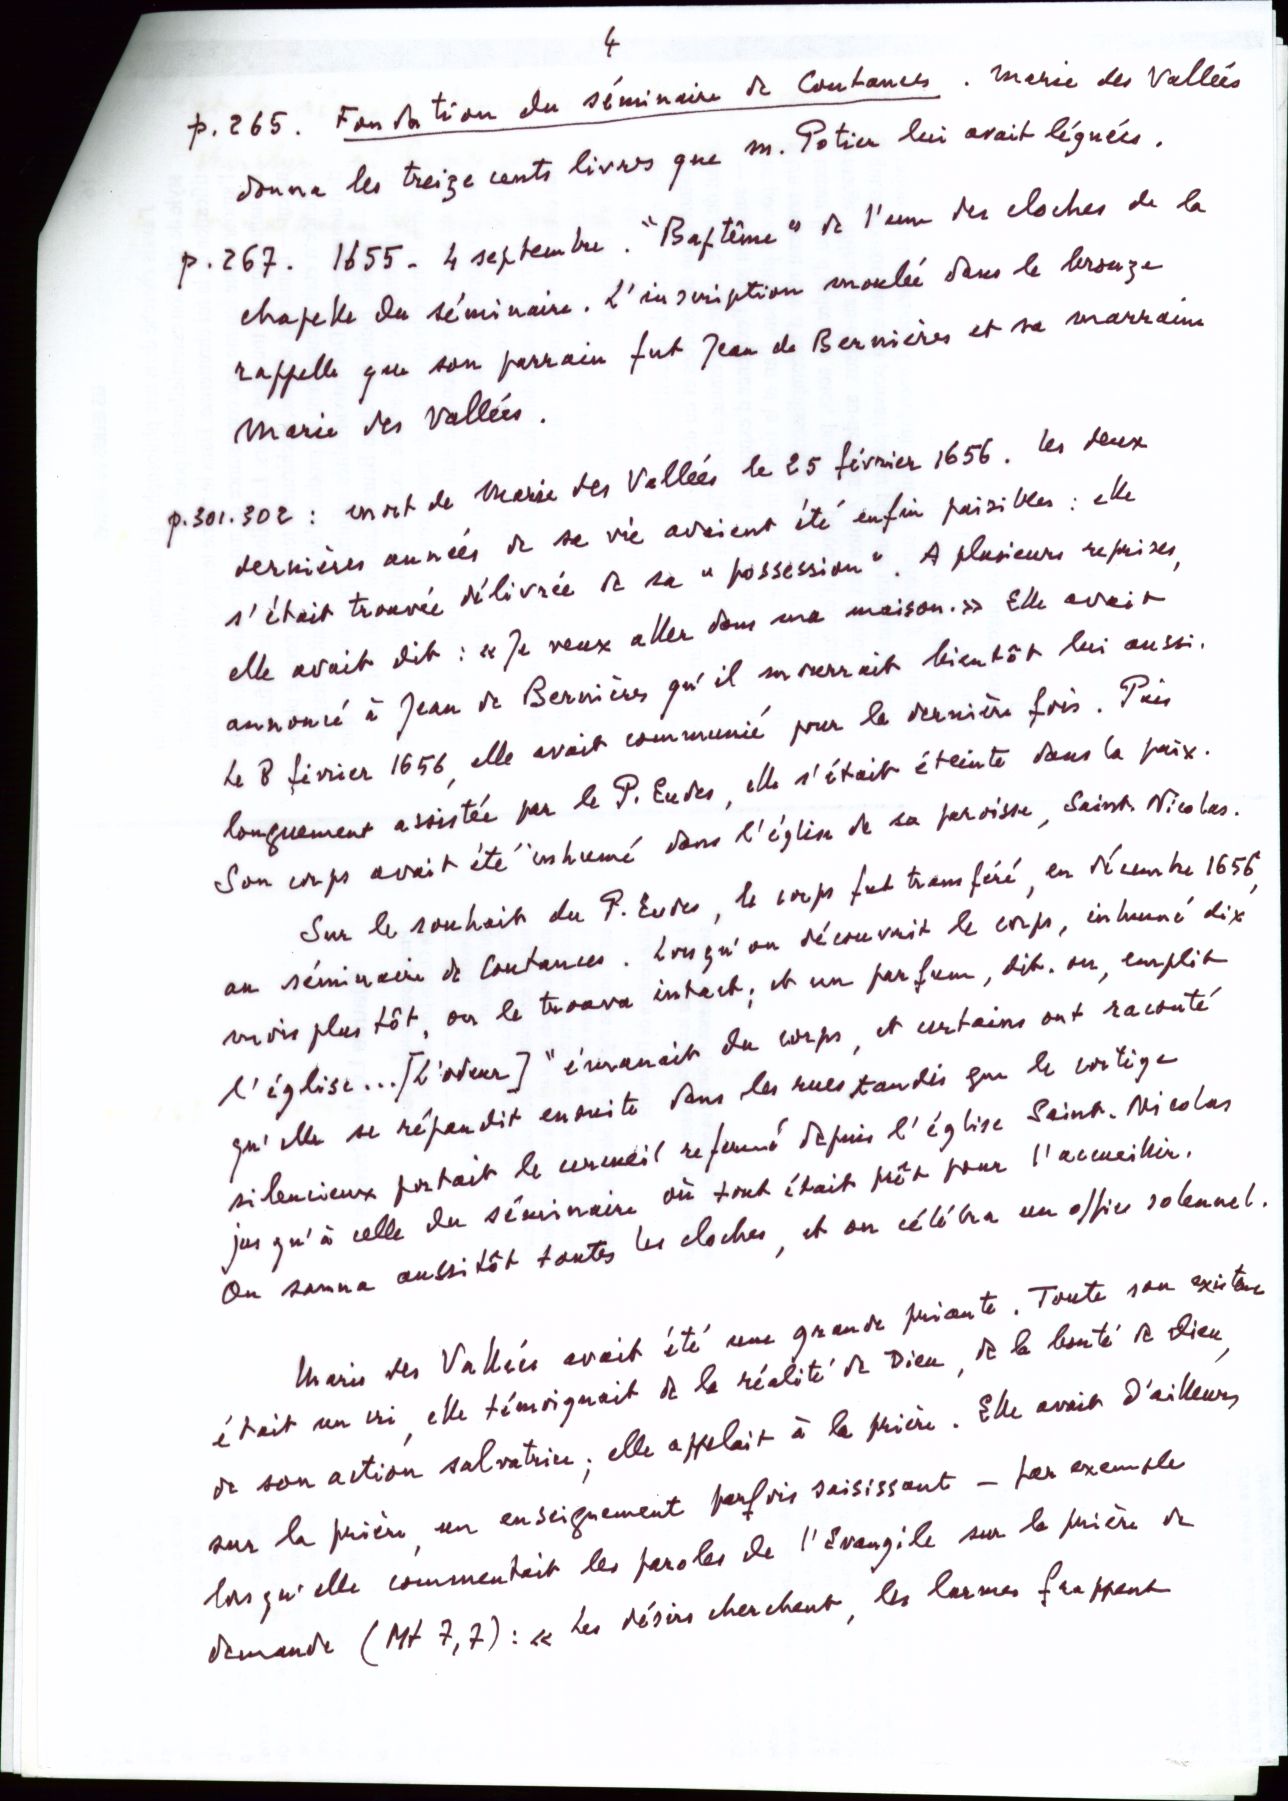 4
p. 265. Fondation du séminaire de Coutances. Marie des Vallées
donna les treize cents livres que M. Potier lui avait légués.
p. 267. 1655 - 4 septembre. "Baptême" de l'une des cloches de la
chapelle du séminaire. L'inscription moulée dans le bronze
rappelle que son parrain fut Jean de Bernières et sa marraine
Marie des Vallées.
p. 301.302 : mort de Marie des Vallées le 25 février 1656. Les deux
dernières années de sa vie avaient été enfin paisibles : elle
s'était trouvée délivrée de sa "possession". A plusieurs reprises,
elle avait dit : « Je veux aller dans ma maison. » Elle avait
annoncé à Jean de Bernières qu'il mourrait bientôt lui aussi.
Le 8 février 1656, elle avait communié pour la dernière fois. Puis
longuement assistée par le P. Eudes, elle s'était éteinte dans la paix.
Son corps avait été inhumé dans l'église de sa paroisse, Saint-Nicolas.
Sur le souhait du P. Eudes, le corps fut transféré, en décembre 1656,
au séminaire de Coutances. Lorsqu'on découvrit le corps, inhumé dix
mois plus tôt, on le trouva intact ; et un parfum, dit-on, emplit
l'église... [L'odeur] "émanait du corps, et certains ont raconté
qu'elle se répandit ensuite dans les rues tandis que le cortège
silencieux portait le cercueil refermé depuis l'église Saint-Nicolas
jusqu'à celle du séminaire où tout était prêt pour l'accueillir.
On sonna aussitôt toutes les cloches, et on célébra un office solennel.
Marie des Vallées avait été une grande priante. Toute son existence
était un cri, elle témoignait de la réalité de Dieu, de la bonté de Dieu,
de son action salvatrice ; elle appelait à la prière. Elle avait d'ailleurs
sur la prière, un enseignement parfois saisissant - par exemple
lorsqu'elle commentait les paroles de l'Evangile sur la prière de
demande (Mt 7,7) : « Les désirs cherchent, les larmes frappent